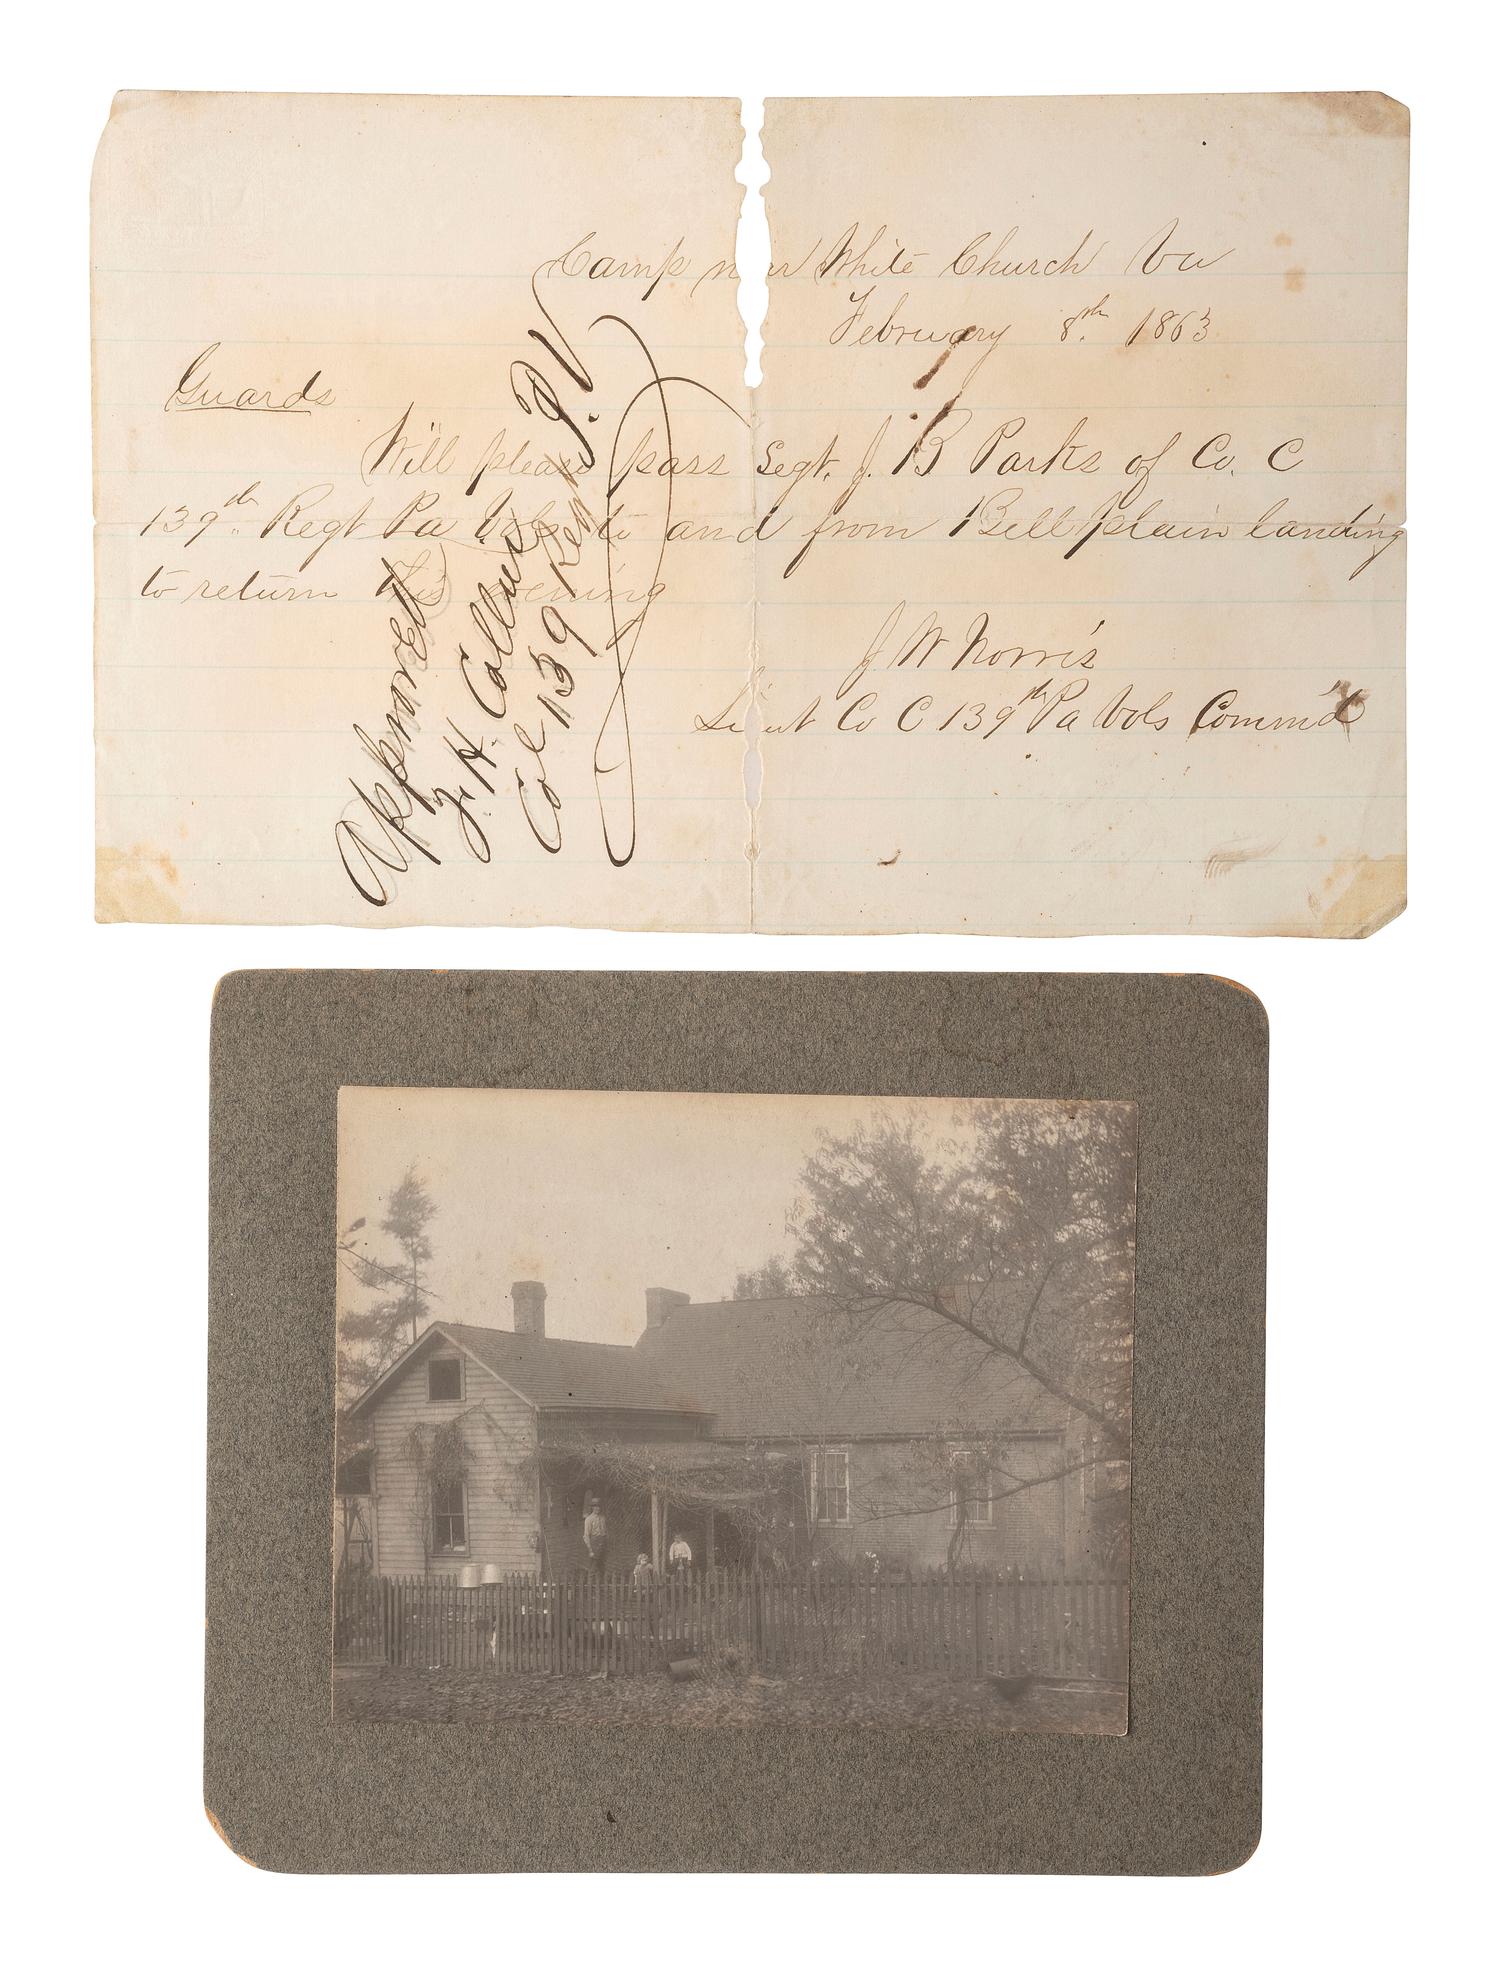 Camp near White Church Va
February 8th 1863
Guards
Will please pass Segt. J. B Parks of Co. C
139th Regt Pa Vols to and from Bell plain landing
to return this evening
J W Norris
Lieut Co C 139th Pa Vols Commd
Approved
F. H. Collier
Col 139 Regt P. V